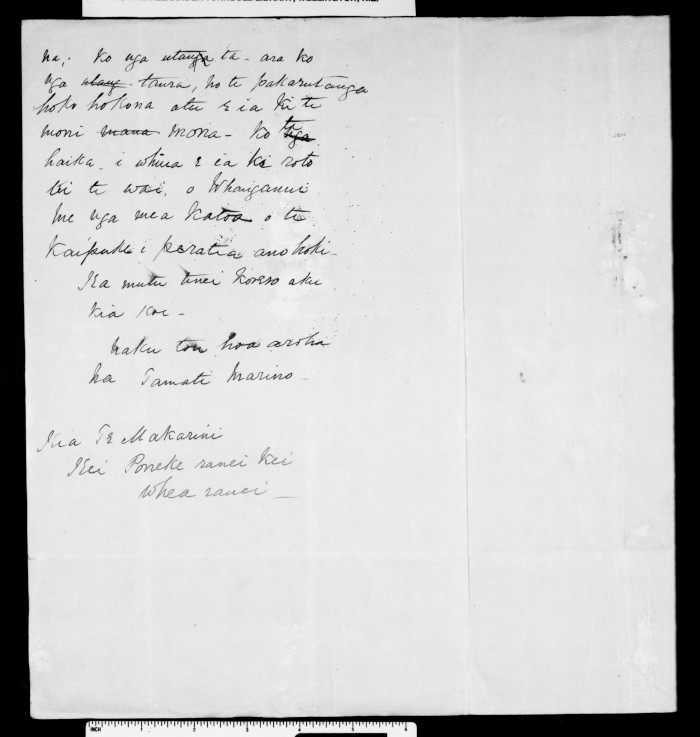 na; Ko nga utanga ta - ara ko
nga utang taura, no te pakarutanga
hoko hokona atu e ia ki te
moni mana mona - Ko te nga
haika - i whiua e ia ki roto
ki te wai, o Whaiganui
me nga mea Katoa o te
Kaipuke i peratia ano hoki -
Ka mutu tenei Korero aku
kia koe -
Naku tou hoa aroha
Na Tamati Marino -
Kia Te Makarini
Kei Poneke ranei Kei
whea ranei -
INCH 1 2 3 4 5 6